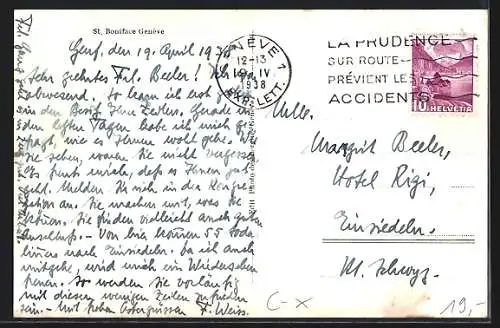 St. Boniface Genève
Genf, den 19. April 1938
Sehr geehrtes Frl. Beeler! Ich war
abwesend. So kam ich erst in
den Besitz Ihrer Zeilen. Gerade in
den letzten Tagen habe ich mich ge-
fragt, wie es Ihnen wohl gehe. Wie
Sie sehen, waren Sie nicht vergessen.
Es freut mich, daß es Ihnen gut
geht. Melden Sie sich in der Kongre-
gation an. Sie machen mit, was Sie
können. Sie finden vielleicht auch guten
Anschluß. – Von hier kommen 55
nach Einsiedeln. Da ich auch
mitgehe, wird auch ein Wiedersehen
So werden Sie vorläufig
mit diesen wenigen Zeilen zufrieden
sein. – Mit frohen Ostergrüssen F. Weiss.
GENÈVE 1
12-13
19.IV.
1938
EXP. LETT.
LA PRUDENCE
SUR ROUTE
PRÉVIENT LES
ACCIDENTS
10 HELVETIA
Mlle.
Margrit Beeler,
Hotel Rigi,
Einsiedeln.
Kt. Schwyz.
C-X
19,-